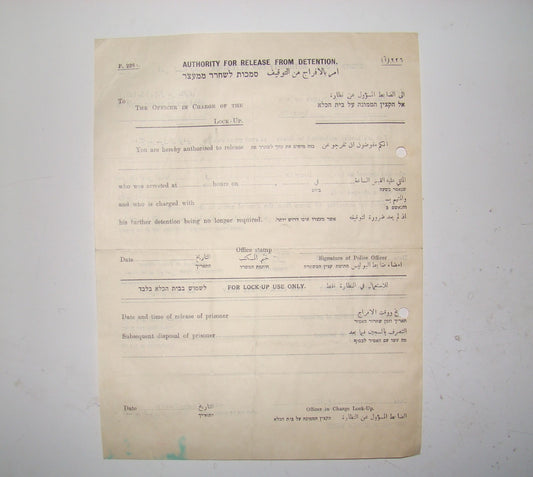 P. 226
AUTHORITY FOR RELEASE FROM DETENTION.
٢٢٦ (أ)
امر بالافراج من التوقيف סמכות לשחרר ממעצר
To
THE OFFICER IN CHARGE OF THE
LOCK-UP.
الى الضابط المسؤول عن نظارة
אל הקצין הממונה על בית הכלא
You are hereby authorized to release
انكم مفوضون ان تفرجوا عن
who was arrested at hours on
في
التي عليه القبض الساعة
שנאסר בשעה
ביום
and who is charged with
والتهم ب
והנאשם ב
his further detention being no longer required.
אשר מעצרו אינו דרוש יותר.
اذ لم يعد ضرورة لتوقيفه
Office stamp
Date التاريخ
התאריך
ختم المكتب
חותמת המשרד
Signature of Police Officer
امضاء ضابط البوليس חתימת קצין המשטרה
לשמוש בבית הכלא בלבד
FOR LOCK-UP USE ONLY.
للاستعمال في النظارة فقط
Date and time of release of prisoner
ووقت الافراج
תאריך וזמן שחרור האסיר
Subsequent disposal of prisoner
التصرف بالسجين فيما بعد
Date التاريخ
התאריך
Officer in Charge Lock-Up.
الضابط المسؤول عن النظارة הקצין הממונה על בית הכלא